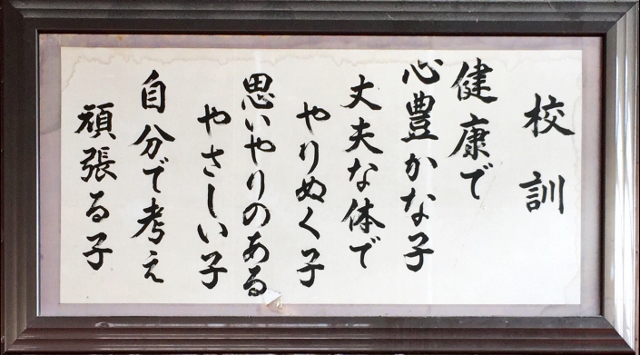 校訓
健康で
心豊かな子
丈夫な体で
やりぬく子
思いやりのある
やさしい子
自分で考え
頑張る子